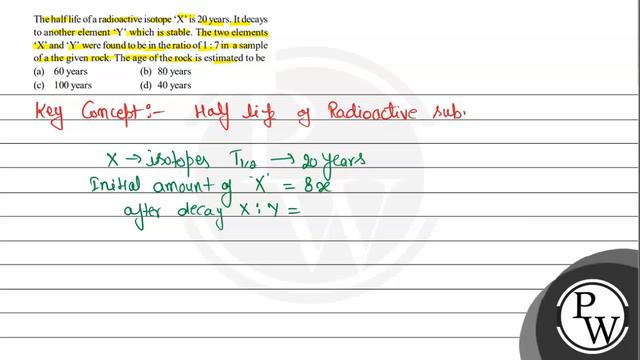 The half life of a radioactive isotope ‘X’ is 20 years. It decays
to another element ‘Y’ which is stable. The two elements
‘X’ and ‘Y’ were found to be in the ratio of 1 : 7 in a sample
of a the given rock. The age of the rock is estimated to be
(a) 60 years (b) 80 years
(c) 100 years (d) 40 years
Key Concept:- Half life of Radioactive sub.
X → isotopes T1/2 → 20 years
Initial amount of 'X' = 8x
after decay X : Y =
PW
PW